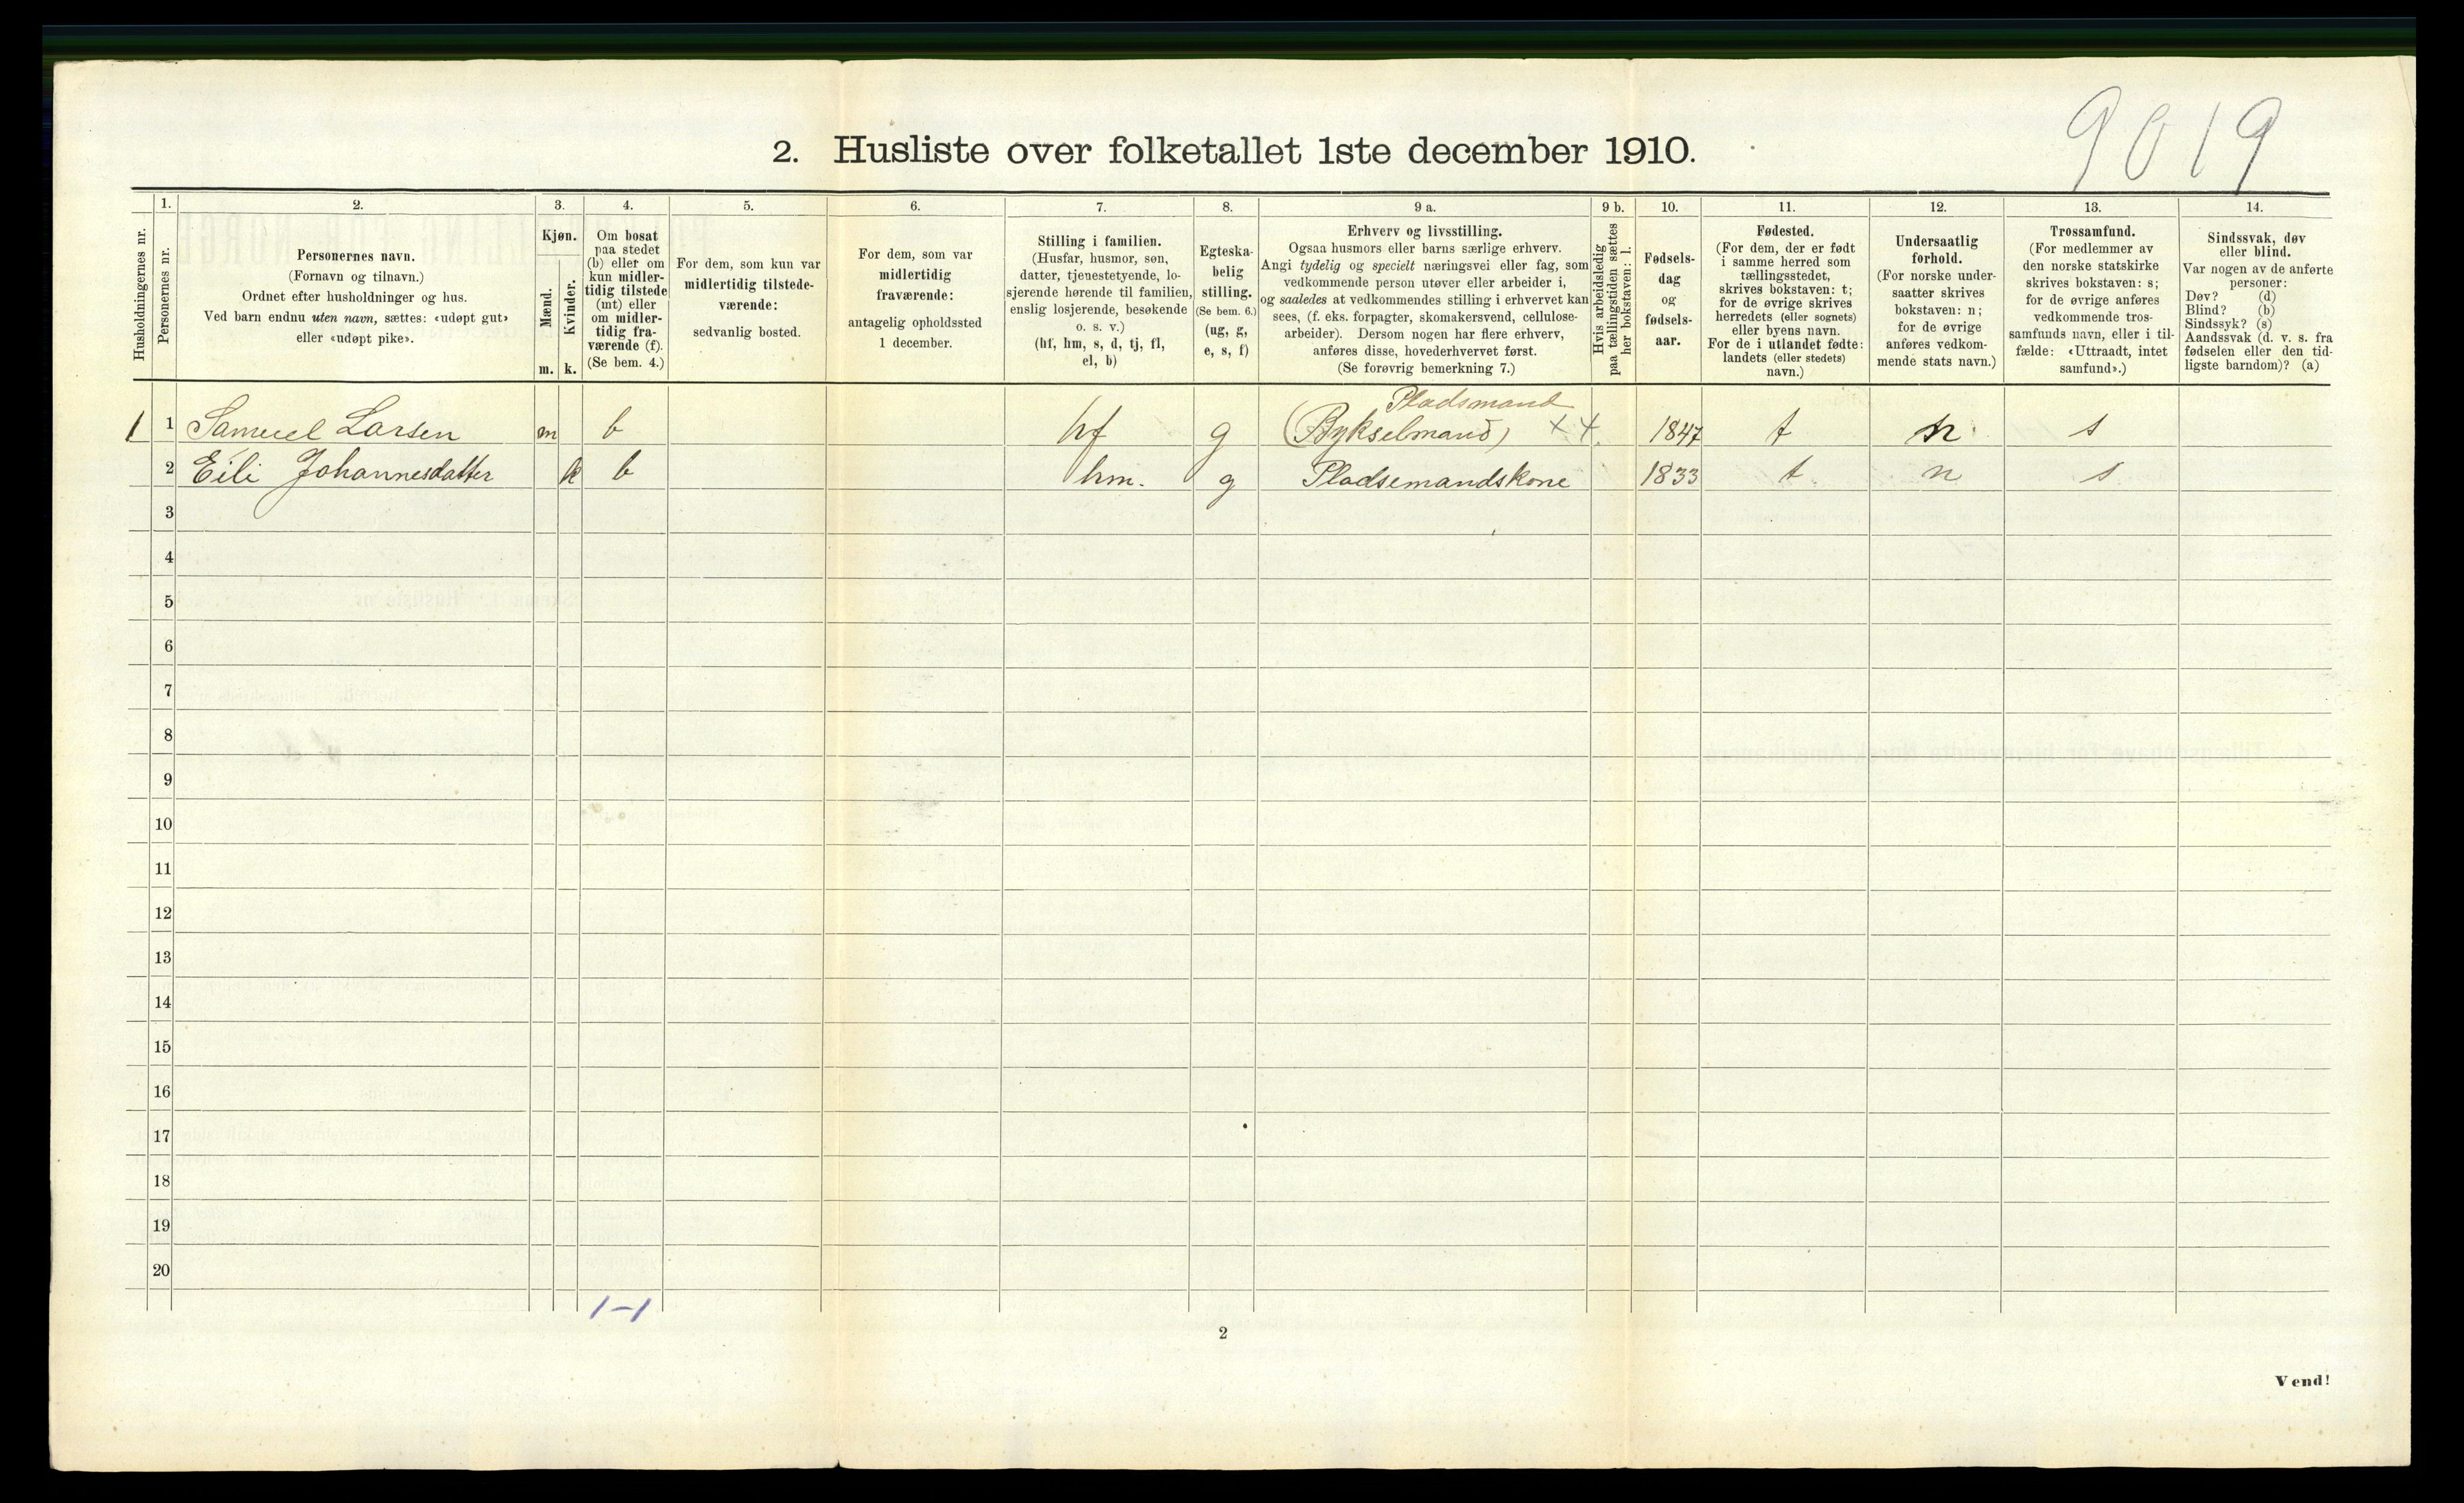 9019
2. Husliste over folketallet 1ste december 1910.
Husholdningernes nr.
1.
Personernes nr.
2.
Personernes navn.
(Fornavn og tilnavn.)
Ordnet efter husholdninger og hus.
Ved barn endnu uten navn, sættes: «udøpt gut»
eller «udøpt pike».
3.
Kjøn.
Mænd.
Kvinder.
m. k.
4.
Om bosat
paa stedet
(b) eller om
kun midler-
tidig tilstede
(mt) eller
om midler-
tidig fra-
værende (f).
(Se bem. 4.)
5.
For dem, som kun var
midlertidig tilstede-
værende:
sedvanlig bosted.
6.
For dem, som var
midlertidig
fraværende:
antagelig opholdssted
1 december.
7.
Stilling i familien.
(Husfar, husmor, søn,
datter, tjenestetyende, lo-
sjerende hørende til familien,
enslig losjerende, besøkende
o. s. v.)
(hf, hm, s, d, tj, fl,
el, b)
8.
Egteska-
belig
stilling.
(Se bem. 6.)
(ug, g,
e, s, f)
9 a.
Erhverv og livsstilling.
Ogsaa husmors eller barns særlige erhverv.
Angi tydelig og specielt næringsvei eller fag, som
vedkommende person utøver eller arbeider i,
og saaledes at vedkommendes stilling i erhvervet kan
sees, (f. eks. forpagter, skomakersvend, cellulose-
arbeider). Dersom nogen har flere erhverv,
anføres disse, hovederhvervet først.
(Se forøvrig bemerkning 7.)
9 b.
Hvis arbeidsledig
paa tællingstiden sættes
her bokstaven: l.
10.
Fødsels-
dag
og
fødsels-
aar.
11.
Fødested.
(For dem, der er født
i samme herred som
tællingsstedet,
skrives bokstaven: t;
for de øvrige skrives
herredets (eller sognets)
eller byens navn.
For de i utlandet fødte:
landets (eller stedets)
navn.)
12.
Undersaatlig
forhold.
(For norske under-
saatter skrives
bokstaven: n;
for de øvrige
anføres vedkom-
mende stats navn.)
13.
Trossamfund.
(For medlemmer av
den norske statskirke
skrives bokstaven: s;
for de øvrige anføres
vedkommende tros-
samfunds navn, eller i til-
fælde: «Uttraadt, intet
samfund».)
14.
Sindssvak, døv
eller blind.
Var nogen av de anførte
personer:
Døv? (d)
Blind? (b)
Sindssyk? (s)
Aandssvak (d. v. s. fra
fødselen eller den tid-
ligste barndom)? (a)
Pladsmand
1 1 Samuel Larsen m b hf g (Bykselmand) x 4. 1847 t n s
2 Eili Johannesdatter k b hm. g Pladsemandskone 1833 t n s
3
4
5
6
7
8
9
10
11
12
13
14
15
16
17
18
19
20
1-1
2
Vend!